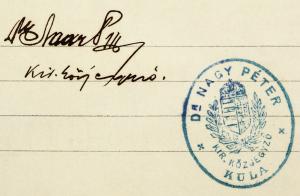 Kir. közjegyző.
DR NAGY PÉTER
KIR. KÖZJEGYZŐ
KULA